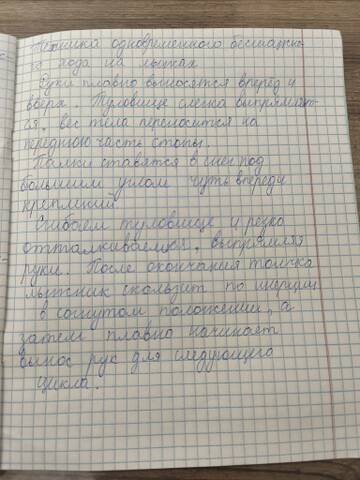 Техника одновременного бесшажно-
го хода на лыжах
Руки плавно выносятся вперёд и
вверх. Туловище слегка выпрямляет-
ся, вес тела переносится на
переднюю часть стопы.
Палки ставятся в снег под
большим углом чуть впереди
креплений.
Сгибаем туловище и резко
отталкиваемся, выпрямляя
руки. После окончания толчка
лыжник скользит по инерции
в согнутом положении, а
затем плавно начинает
вынос рук для следующего
цикла.